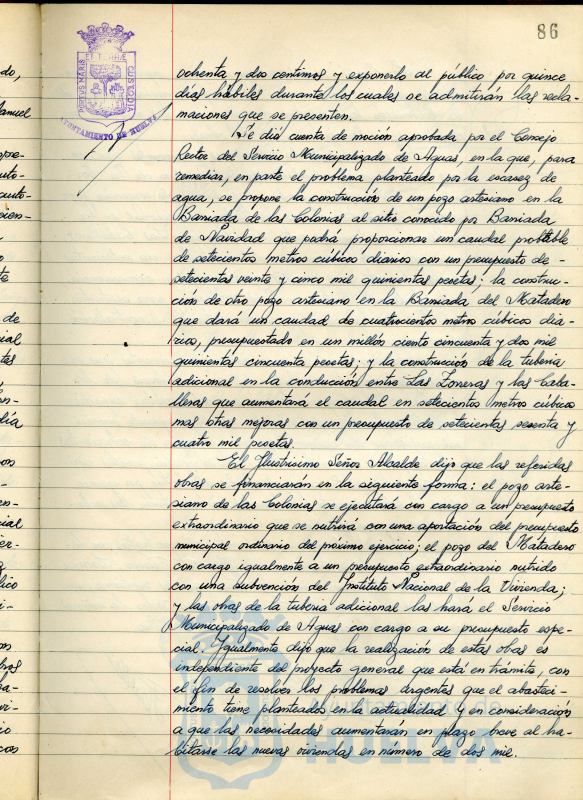 86
PORTUS MARIS ET TERRÆ CUSTODIA
AYUNTAMIENTO DE HUELVA
ochenta y dos centimos y exponerlo al público por quince
días hábiles durante los cuales se admitirán las recla-
maciones que se presenten.
Se dió cuenta de moción aprobada por el Consejo
Rector del Servicio Municipalizado de Aguas, en la que, para
remediar, en parte el problema planteado por la escasez de
agua, se propone la construcción de un pozo artesiano en la
Barriada de las Colonias al sitio conocido por Barriada
de Navidad que podrá proporcionar un caudal probable
de setecientos metros cúbicos diarios con un presupuesto de-
setecientas veinte y cinco mil quinientas pesetas; la construc-
ción de otro pozo artesiano en la Barriada del Matadero
que dará un caudal de cuatrocientos metros cúbicos dia-
rios, presupuestado en un millón ciento cincuenta y dos mil
quinientas cincuenta pesetas; y la construcción de la tubería
adicional en la conducción entre Las Zorreras y las Caba-
lleras que aumentará el caudal en setecientos metros cúbicos
mas otras mejoras con un presupuesto de setecientas sesenta y
cuatro mil pesetas.
El Ilustrisimo Señor Alcalde dijo que las referidas
obras se financiarán en la siguiente forma: el pozo arte-
siano de las Colonias se ejecutará con cargo a un presupuesto
extraordinario que se nutrirá con una aportación del presupuesto
municipal ordinario del próximo ejercicio; el pozo del Matadero
con cargo igualmente a un presupuesto extraordinario nutrido
con una subvención del Instituto Nacional de la Vivienda;
y las obras de la tuberia adicional las hará el Servicio
Municipalizado de Aguas con cargo a su presupuesto espe-
cial. Igualmente dijo que la realización de estas obras es
independiente del proyecto general que está en trámite, con
el fin de resolver los problemas urgentes que el abasteci-
miento tiene planteados en la actualidad y en consideración
a que las necesidades aumentarán en plazo breve al ha-
bitarse las nuevas viviendas en número de dos mil.